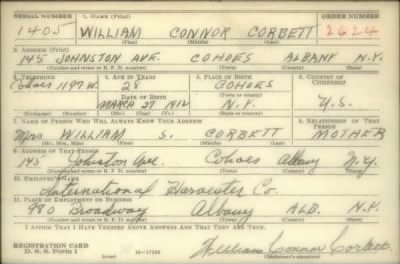 SERIAL NUMBER 1. NAME (Print) ORDER NUMBER
1405 WILLIAM CONNOR CORBETT 2624
(First) (Middle) (Last)
2. ADDRESS (Print)
145 JOHNSTON AVE. COHOES ALBANY N.Y.
(Number and street or R. F. D. number) (Town) (County) (State)
3. TELEPHONE 4. AGE IN YEARS 5. PLACE OF BIRTH 6. COUNTRY OF CITIZENSHIP
Cohoes 1197W. 28 COHOES
DATE OF BIRTH (Town or county)
MARCH 27 1912 N.Y. U.S.
(Exchange) (Number) (Mo.) (Day) (Yr.) (State or country)
7. NAME OF PERSON WHO WILL ALWAYS KNOW YOUR ADDRESS 8. RELATIONSHIP OF THAT PERSON
Mrs WILLIAM S. CORBETT MOTHER
(Mr., Mrs., Miss) (First) (Middle) (Last)
9. ADDRESS OF THAT PERSON
145 Johnston Ave. Cohoes Albany N.Y.
(Number and street or R. F. D. number) (Town) (County) (State)
10. EMPLOYER'S NAME
International Harvester Co.
11. PLACE OF EMPLOYMENT OR BUSINESS
980 Broadway Albany ALB. N.Y.
(Number and street or R. F. D. number) (Town) (County) (State)
I AFFIRM THAT I HAVE VERIFIED ABOVE ANSWERS AND THAT THEY ARE TRUE.
REGISTRATION CARD
D. S. S. Form 1 (over) William Connor Corbett
(Registrant's signature)